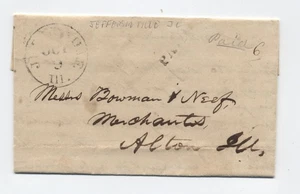 JEFFERSONVILLE IL
Paid 6
OCT
9
Ill.
Messrs Bowman & Neef,
Merchants,
Alton Ill,